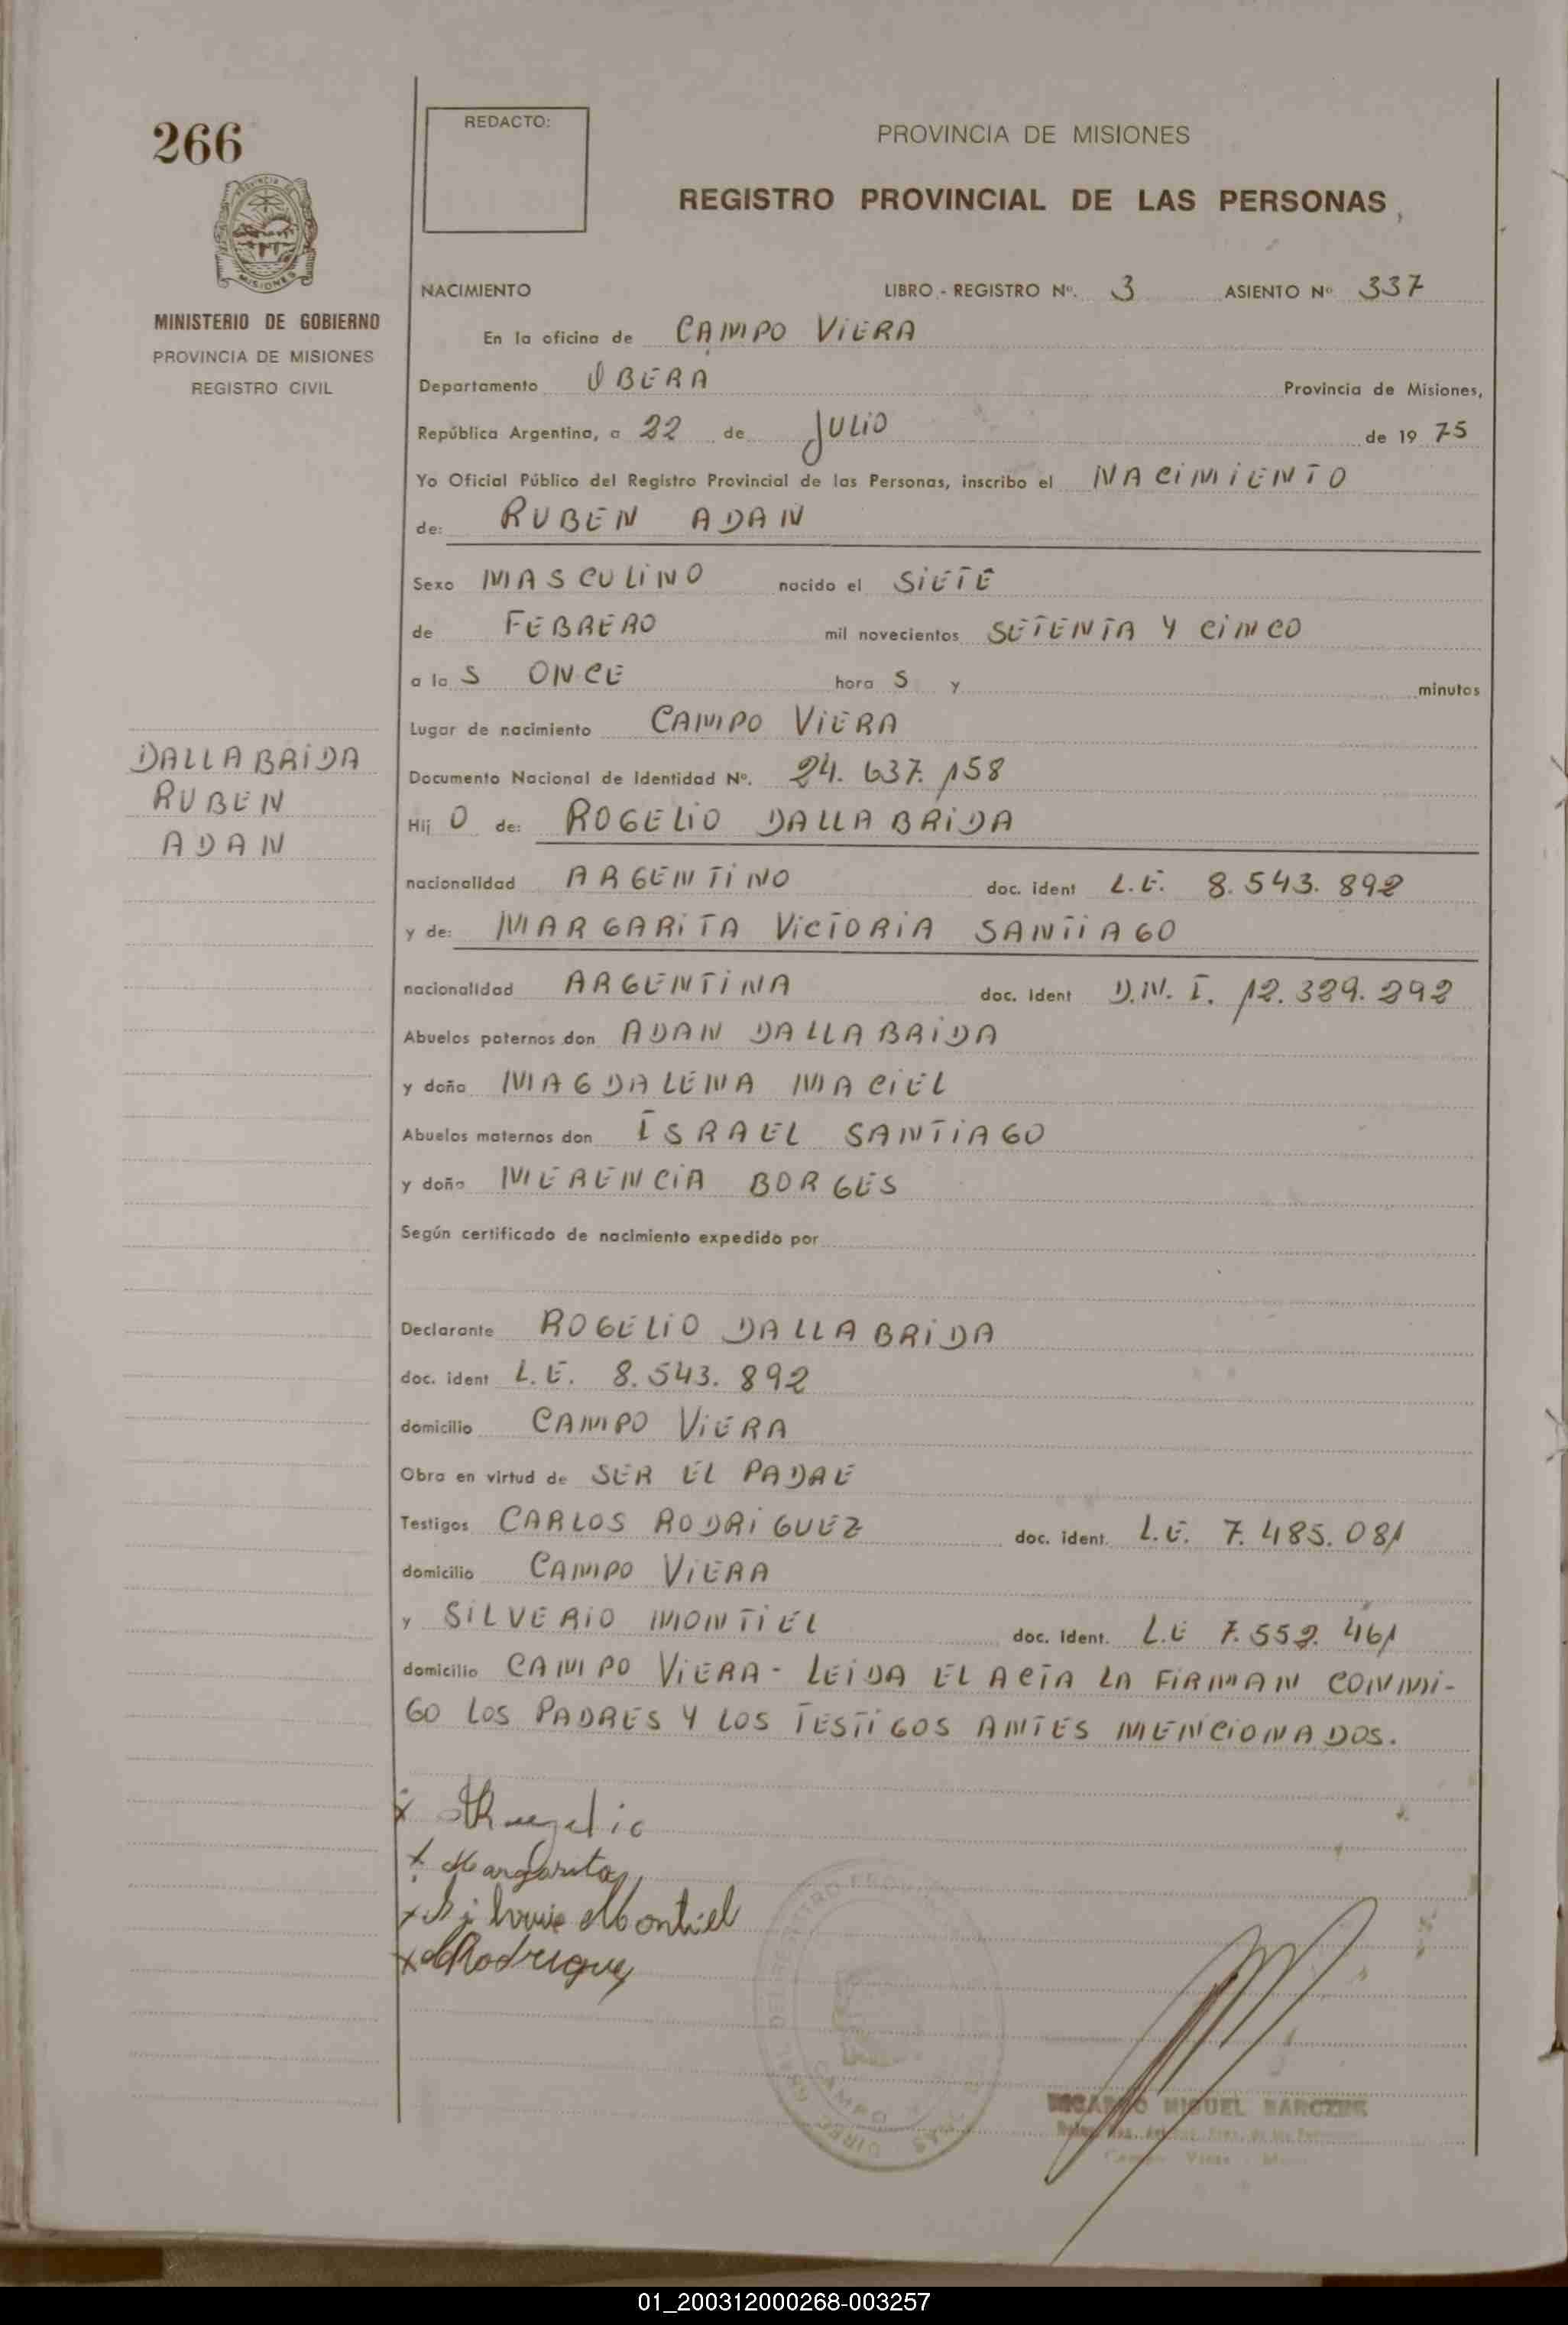 266
REDACTO:
PROVINCIA DE MISIONES
REGISTRO PROVINCIAL DE LAS PERSONAS
PROVINCIA DE
MISIONES
MINISTERIO DE GOBIERNO
PROVINCIA DE MISIONES
REGISTRO CIVIL
NACIMIENTO LIBRO - REGISTRO Nº. 3 ASIENTO Nº 337
En la oficina de CAMPO VIERA
Departamento OBERA Provincia de Misiones,
República Argentina, a 22 de JULIO de 1975
Yo Oficial Público del Registro Provincial de las Personas, inscribo el NACIMIENTO
de: RUBEN ADAN
Sexo MASCULINO nacido el SIETE
de FEBRERO mil novecientos SETENTA Y CINCO
a la S ONCE hora S y minutos
Lugar de nacimiento CAMPO VIERA
Documento Nacional de Identidad Nº. 24.637.158
DALLABRIDA
RUBEN
ADAN
Hij O de: ROGELIO DALLABRIDA
nacionalidad ARGENTINO doc. ident L.E. 8.543.892
y de: MARGARITA VICTORIA SANTIAGO
nacionalidad ARGENTINA doc. ident D.N.I. 12.329.292
Abuelos paternos don ADAN DALLABRIDA
y doña MAGDALENA MACIEL
Abuelos maternos don ISRAEL SANTIAGO
y doña MERENCIA BORGES
Según certificado de nacimiento expedido por
Declarante ROGELIO DALLABRIDA
doc. ident L.E. 8.543.892
domicilio CAMPO VIERA
Obra en virtud de SER EL PADRE
Testigos CARLOS RODRIGUEZ doc. ident. L.E. 7.485.081
domicilio CAMPO VIERA
y SILVERIO MONTIEL doc. Ident. L.E 7.552.461
domicilio CAMPO VIERA - LEIDA EL ACTA LA FIRMAN CONMI-
GO LOS PADRES Y LOS TESTIGOS ANTES MENCIONADOS.
x
x Margarita
x Montiel
x Rodriguez
CAMPO
MIGUEL
01_200312000268-003257